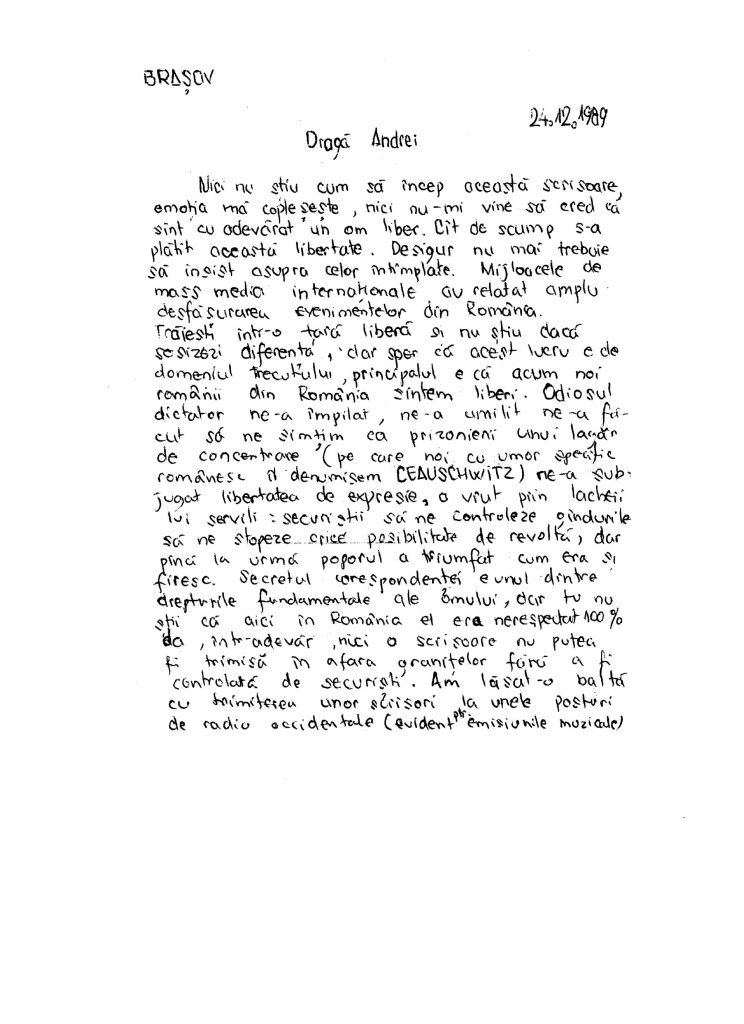 BRAȘOV
24.12.1989
Dragă Andrei
Nici nu știu cum să încep această scrisoare,
emoția mă copleșește, nici nu-mi vine să cred că
sînt cu adevărat un om liber. Cît de scump s-a
plătit această libertate. Desigur nu mai trebuie
să insist asupra celor întîmplate. Mijloacele de
mass media internaționale au relatat amplu
desfășurarea evenimentelor din România.
Trăiești într-o țară liberă și nu știu dacă
sesizezi diferența, dar sper că acest lucru e de
domeniul trecutului, principalul e că acum noi
românii din România sîntem liberi. Odiosul
dictator ne-a împilat, ne-a umilit ne-a fă-
cut să ne simțim ca prizonieri unui lagăr
de concentrare (pe care noi cu umor specific
românesc îl denumisem CEAUSCHWITZ) ne-a sub-
jugat libertatea de expresie, a vrut prin lacheii
lui servili : securiștii să ne controleze gîndurile
să ne stopeze orice posibilitate de revoltă, dar
pînă la urmă poporul a triumfat cum era și
firesc. Secretul corespondenței e unul dintre
drepturile fundamentale ale omului, dar tu nu
știi că aici în România el era nerespectat 100%
da, într-adevăr, nici o scrisoare nu putea
fi trimisă în afara granițelor fără a fi
controlată de securiști. Am lăsat-o baltă
cu trimiterea unor scrisori la unele posturi
de radio occidentale (evident ptr emisiunile muzicale)